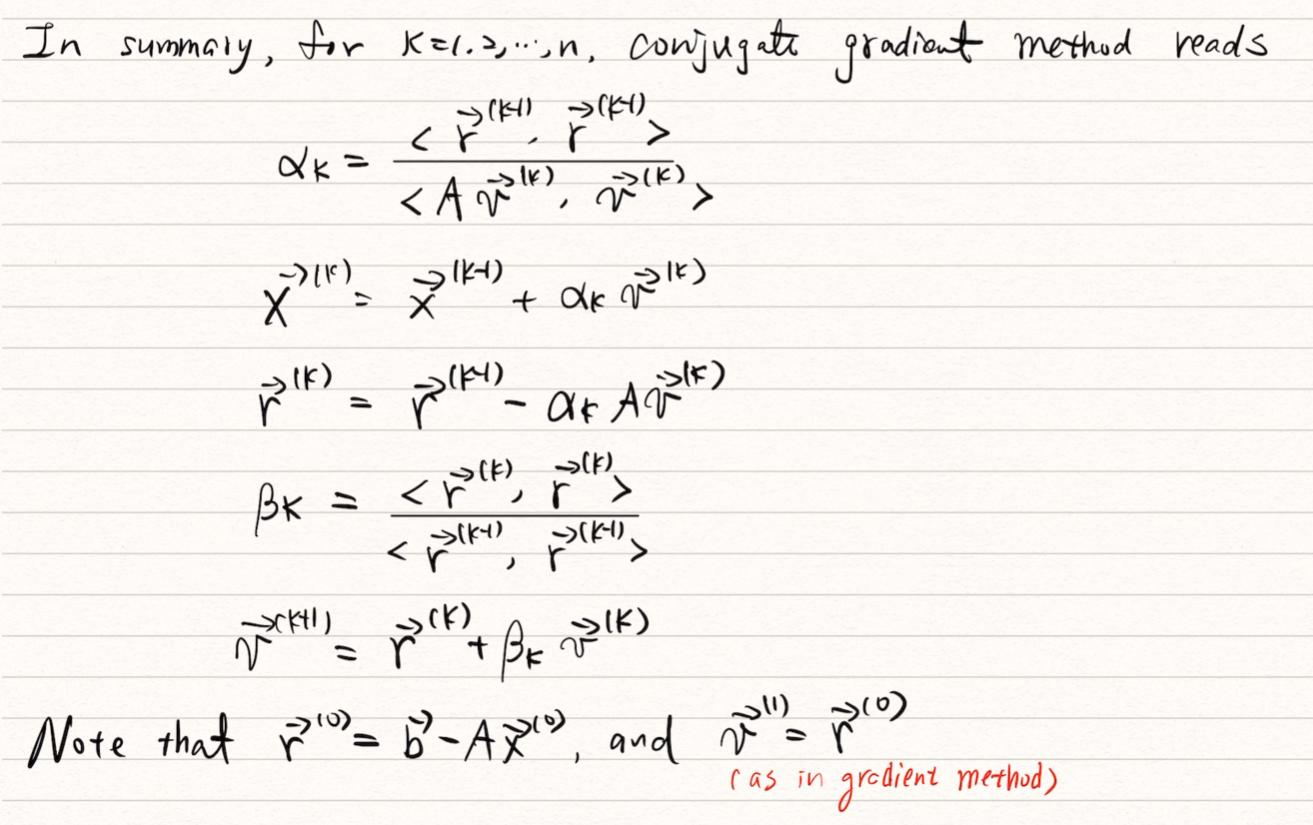 In summary, for K=1.2,...,n, conjugate gradient method reads
αk = < r⃗^(k-1), r⃗^(k-1) > / < A v⃗^(k), v⃗^(k) >
x⃗^(k) = x⃗^(k-1) + αk v⃗^(k)
r⃗^(k) = r⃗^(k-1) - αk A v⃗^(k)
βk = < r⃗^(k), r⃗^(k) > / < r⃗^(k-1), r⃗^(k-1) >
v⃗^(k+1) = r⃗^(k) + βk v⃗^(k)
Note that r⃗^(0) = b⃗ - A x⃗^(0), and v⃗^(1) = r⃗^(0)
(as in gradient method)